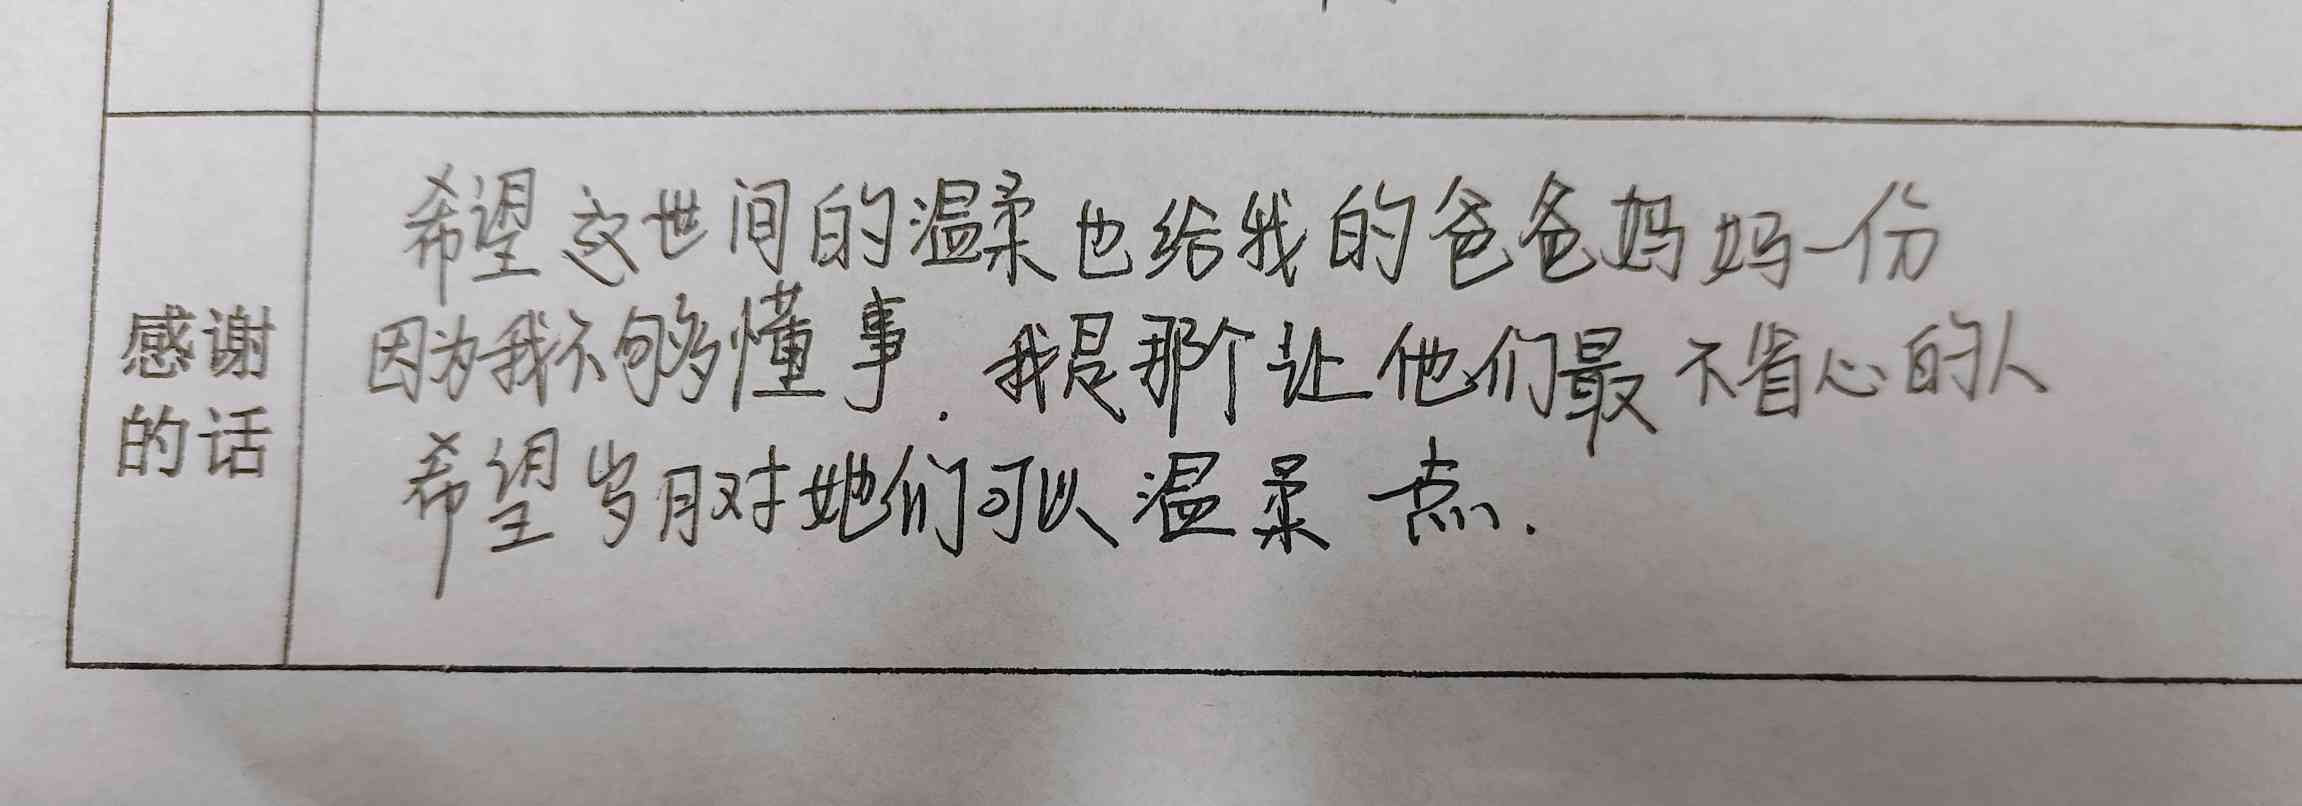 希望这世间的温柔也给我的爸爸妈妈一份
因为我不够懂事.我是那个让他们最不省心的人
感谢
的话
希望岁月对她们可以温柔一点.